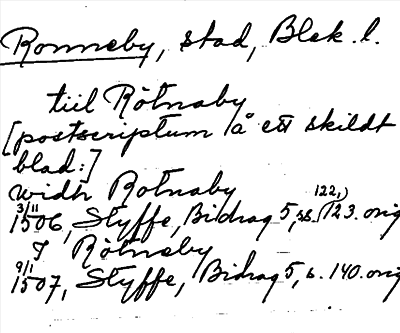 Ronneby, stad, Blek. l.
tiil Rötnaby
[postscriptum å ett skildt
blad:]
widh Rotnaby
3/11 1506, Styffe, Bidrag 5, ss. (122,) 123. orig
I Rötneby
9/1 1507, Styffe, Bidrag 5, s. 140. orig